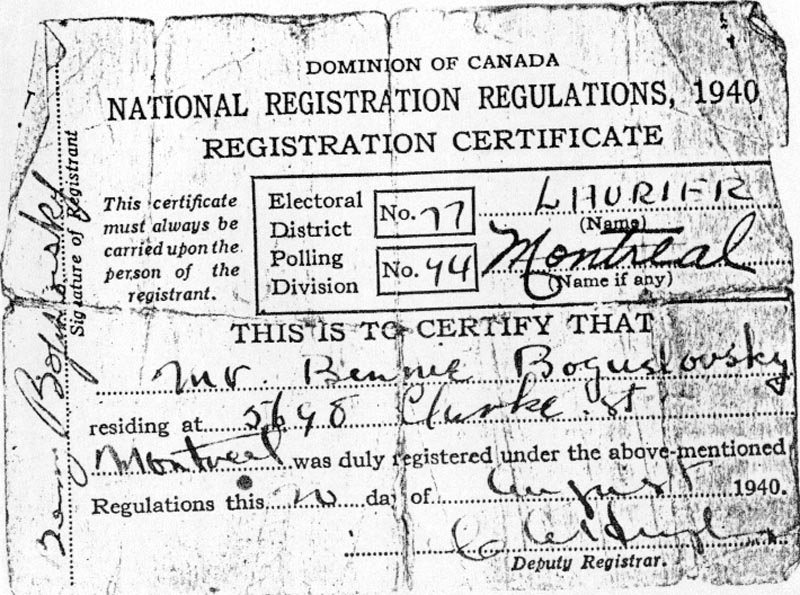 DOMINION OF CANADA
NATIONAL REGISTRATION REGULATIONS, 1940
REGISTRATION CERTIFICATE
This certificate
must always be
carried upon the
person of the
registrant.
Electoral
District
No. 77
LAURIER
(Name)
Polling
Division
No. 44
Montreal
(Name if any)
THIS IS TO CERTIFY THAT
Mr. Bennie Boguslovsky
residing at 5698 Clarke St
Montreal was duly registered under the above-mentioned
Regulations this day of August 1940.
Deputy Registrar.
Signature of Registrant